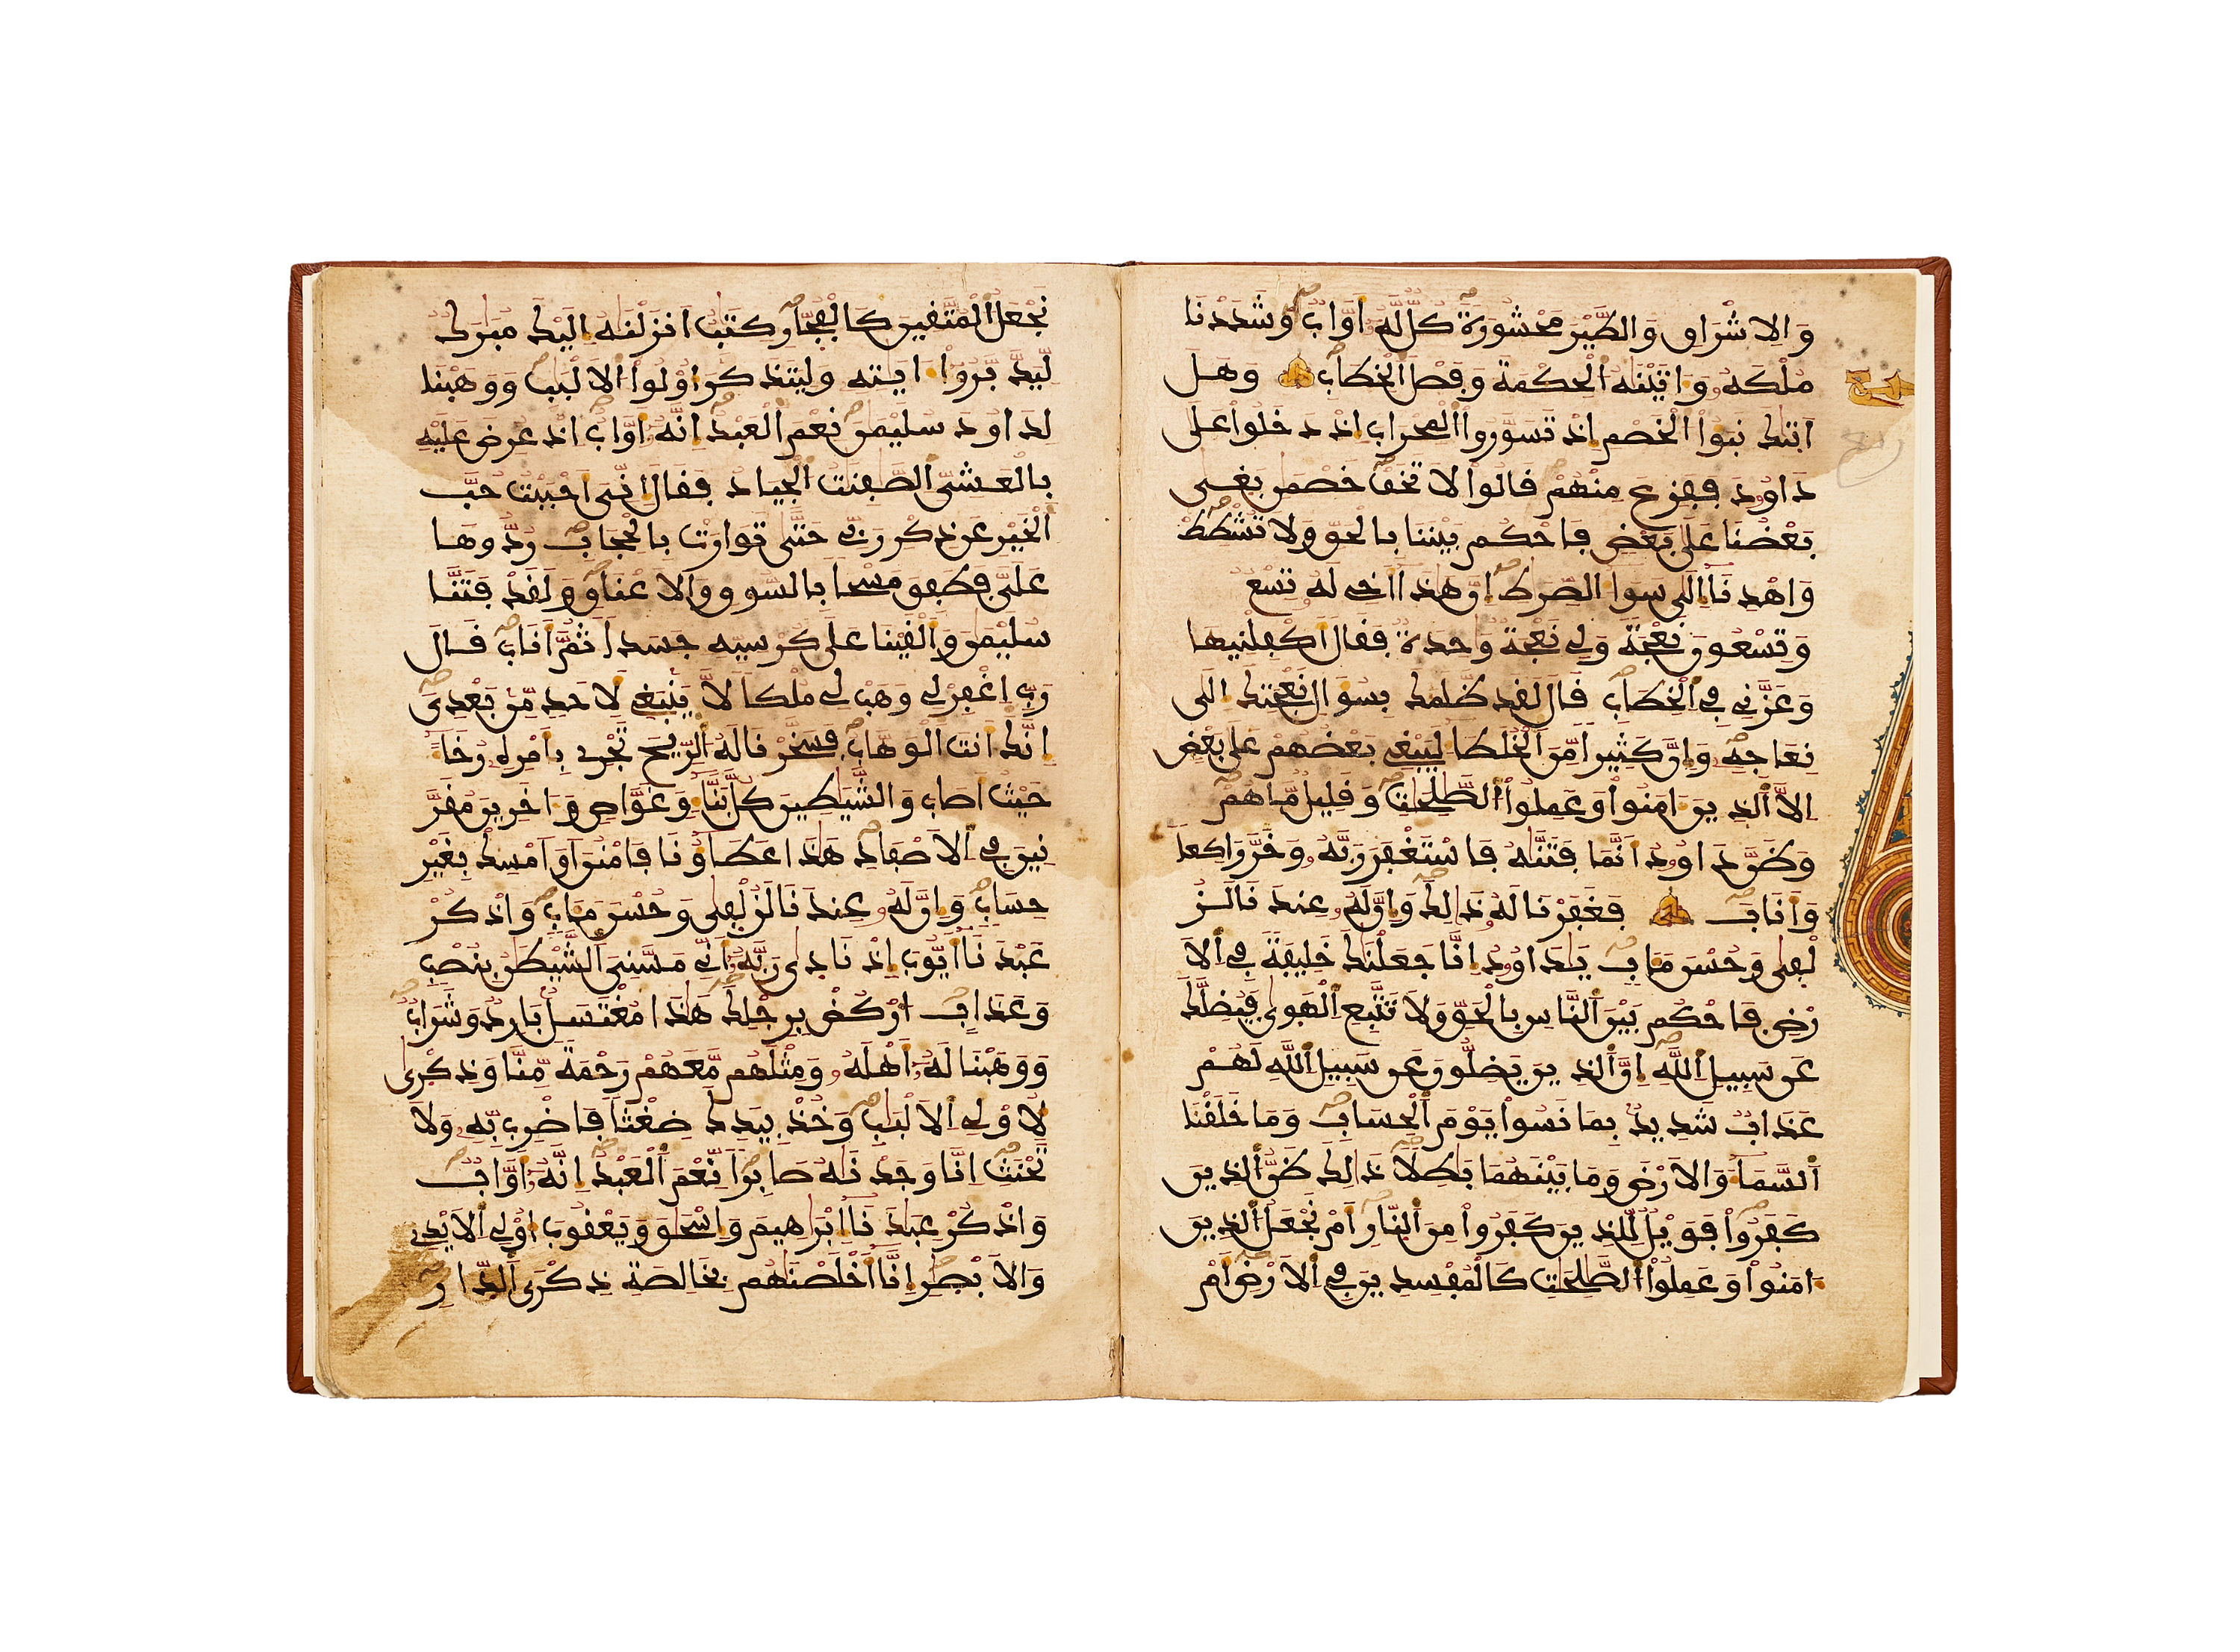 وَالِاشْرَاقِ وَالطَّيْرَ مَحْشُورَةً كُلٌّ لَّهُ أَوَّابٌ وَشَدَدْنَا
مُلْكَهُ وَءَاتَيْنَهُ الْحِكْمَةَ وَفَصْلَ الْخِطَابِ وَهَلَ
اَتَيكَ نَبَؤُا الْخَصْمِ إِذْ تَسَوَّرُوا الْمِحْرَابَ إِذْ دَخَلُوا عَلَى
دَاوُدَ فَفَزِعَ مِنْهُمْ قَالُوا لَا تَخَفْ خَصْمَنِ بَغَى
بَعْضُنَا عَلَى بَعْضٍ فَاحْكُم بَيْنَنَا بِالْحَقِّ وَلَا تُشْطِطْ
وَاهْدِنَا إِلَى سَوَاءِ الصِّرَطِ إِنَّ هَذَا أَخِي لَهُ تِسْعٌ
وَتِسْعُونَ نَعْجَةً وَلِي نَعْجَةٌ وَحِدَةٌ فَقَالَ أَكْفِلْنِيهَا
وَعَزَّنِي فِي الْخِطَابِ قَالَ لَقَد ظَّلَمَكَ بِسُؤَالِ نَعْجَتِكَ إِلَى
نِعَاجِهِ وَإِنَّ كَثِيرًا مِّنَ الْخُلَطَاءِ لَيَبْغِي بَعْضُهُمْ عَلَى بَعْضٍ
إِلَّا الَّذِينَ ءَامَنُوا وَعَمِلُوا الصَّلِحَتِ وَقَلِيلٌ مَّا هُمْ
وَظَنَّ دَاوُدُ أَنَّمَا فَتَنَّهُ فَاسْتَغْفَرَ رَبَّهُ وَخَرَّ رَاكِعًا
وَأَنَابَ فَغَفَرْنَا لَهُ ذَلِكَ وَإِنَّ لَهُ عِندَنَا لَزُ
لْفَى وَحُسْنَ مَـَابٍ يَدَاوُدُ إِنَّا جَعَلْنَكَ خَلِيفَةً فِي الَا
رْضِ فَاحْكُم بَيْنَ النَّاسِ بِالْحَقِّ وَلَا تَتَّبِعِ الْهَوَى فَيُضِلَّكَ
عَن سَبِيلِ اللَّهِ إِنَّ الَّذِينَ يَضِلُّونَ عَن سَبِيلِ اللَّهِ لَهُمْ
عَذَابٌ شَدِيدٌ بِمَا نَسُوا يَوْمَ الْحِسَابِ وَمَا خَلَقْنَا
السَّمَاءَ وَالَارْضَ وَمَا بَيْنَهُمَا بَطِلًا ذَلِكَ ظَنُّ الَّذِينَ
كَفَرُوا فَوَيْلٌ لِّلَّذِينَ كَفَرُوا مِنَ النَّارِ أَمْ نَجْعَلُ الَّذِينَ
ءَامَنُوا وَعَمِلُوا الصَّلِحَتِ كَالْمُفْسِدِينَ فِي الَارْضِ أَمْ
نَجْعَلُ الْمُتَّقِينَ كَالْفُجَّارِ كِتَبٌ أَنزَلْنَهُ إِلَيْكَ مُبَرَكٌ
لِّيَدَّبَّرُوا ءَايَتِهِ وَلِيَتَذَكَّرَ أُوْلُوا الَالْبَبِ وَوَهَبْنَا
لِدَاوُدَ سُلَيْمَنَ نِعْمَ الْعَبْدُ إِنَّهُ أَوَّابٌ إِذْ عُرِضَ عَلَيْهِ
بِالْعَشِيِّ الصَّفِنَتُ الْجِيَادُ فَقَالَ إِنِّيَ أَحْبَبْتُ حُبَّ
الْخَيْرِ عَن ذِكْرِ رَبِّي حَتَّى تَوَارَتْ بِالْحِجَابِ رُدُّوهَا
عَلَيَّ فَطَفِقَ مَسْحًا بِالسُّوقِ وَالَاعْنَاقِ وَلَقَدْ فَتَنَّا
سُلَيْمَنَ وَأَلْقَيْنَا عَلَى كُرْسِيِّهِ جَسَدًا ثُمَّ أَنَابَ قَالَ
رَبِّ اغْفِرْ لِي وَهَبْ لِي مُلْكًا لَّا يَنبَغِي لِأَحَدٍ مِّنْ بَعْدِيَ
إِنَّكَ أَنتَ الْوَهَّابُ فَسَخَّرْنَا لَهُ الرِّيحَ تَجْرِي بِأَمْرِهِ رُخَاءً
حَيْثُ أَصَابَ وَالشَّيَطِينَ كُلَّ بَنَّاءٍ وَغَوَّاصٍ وَءَاخَرِينَ مُقَرَّ
نِينَ فِي الَاصْفَادِ هَذَا عَطَاؤُنَا فَامْنُنَ اَوَ اَمْسِكْ بِغَيْرِ
حِسَابٍ وَإِنَّ لَهُ عِندَنَا لَزُلْفَى وَحُسْنَ مَـَابٍ وَاذْكُرْ
عَبْدَنَا أَيُّوبَ إِذْ نَادَى رَبَّهُ أَنِّي مَسَّنِيَ الشَّيْطَنُ بِنُصْبٍ
وَعَذَابٍ ارْكُضْ بِرِجْلِكَ هَذَا مُغْتَسَلٌ بَارِدٌ وَشَرَابٌ
وَوَهَبْنَا لَهُ أَهْلَهُ وَمِثْلَهُم مَّعَهُمْ رَحْمَةً مِّنَّا وَذِكْرَى
لِأُوْلِي الَالْبَبِ وَخُذْ بِيَدِكَ ضِغْثًا فَاضْرِب بِّهِ وَلَا
تَحْنَثِ إِنَّا وَجَدْنَهُ صَابِرًا نِّعْمَ الْعَبْدُ إِنَّهُ أَوَّابٌ
وَاذْكُرْ عِبَدَنَا إِبْرَاهِيمَ وَإِسْحَقَ وَيَعْقُوبَ أُوْلِي الَايْدِي
وَالَابْصَرِ إِنَّا أَخْلَصْنَهُم بِخَالِصَةِ ذِكْرَى الدَّارِ